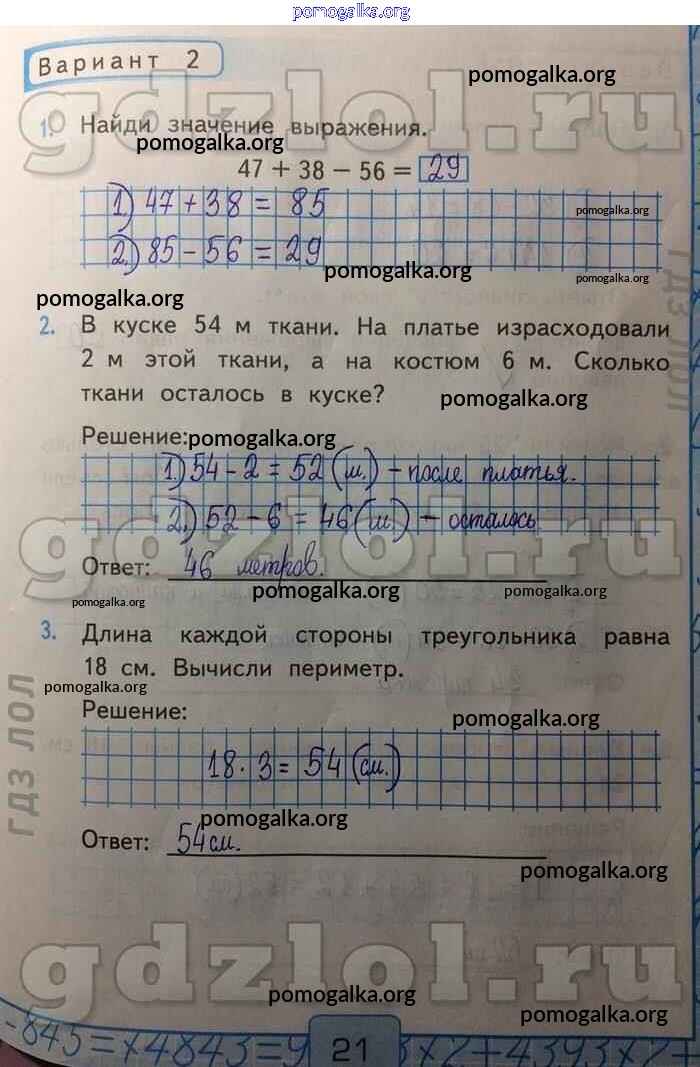 pomogalka.org
Вариант 2
pomogalka.org
gdzlol.ru
1. Найди значение выражения.
pomogalka.org
47 + 38 − 56 = 29
1) 47 + 38 = 85
pomogalka.org
2.) 85 − 56 = 29
pomogalka.org
pomogalka.org
ГДЗ ЛОЛ
2. В куске 54 м ткани. На платье израсходовали
2 м этой ткани, а на костюм 6 м. Сколько
ткани осталось в куске?
pomogalka.org
Решение:
pomogalka.org
1.) 54 − 2 = 52 (м.) − после платья.
2.) 52 − 6 = 46 (м.) − осталось
gdzlol.ru
Ответ: 46 метров.
pomogalka.org
pomogalka.org
pomogalka.org
3. Длина каждой стороны треугольника равна
18 см. Вычисли периметр.
pomogalka.org
Решение:
pomogalka.org
ГДЗ ЛОЛ
18 · 3 = 54 (см.)
pomogalka.org
Ответ: 54 см.
pomogalka.org
gdzlol.ru
pomogalka.org
pomogalka.org
-845=×4843=9
21
3×2+4393×2+